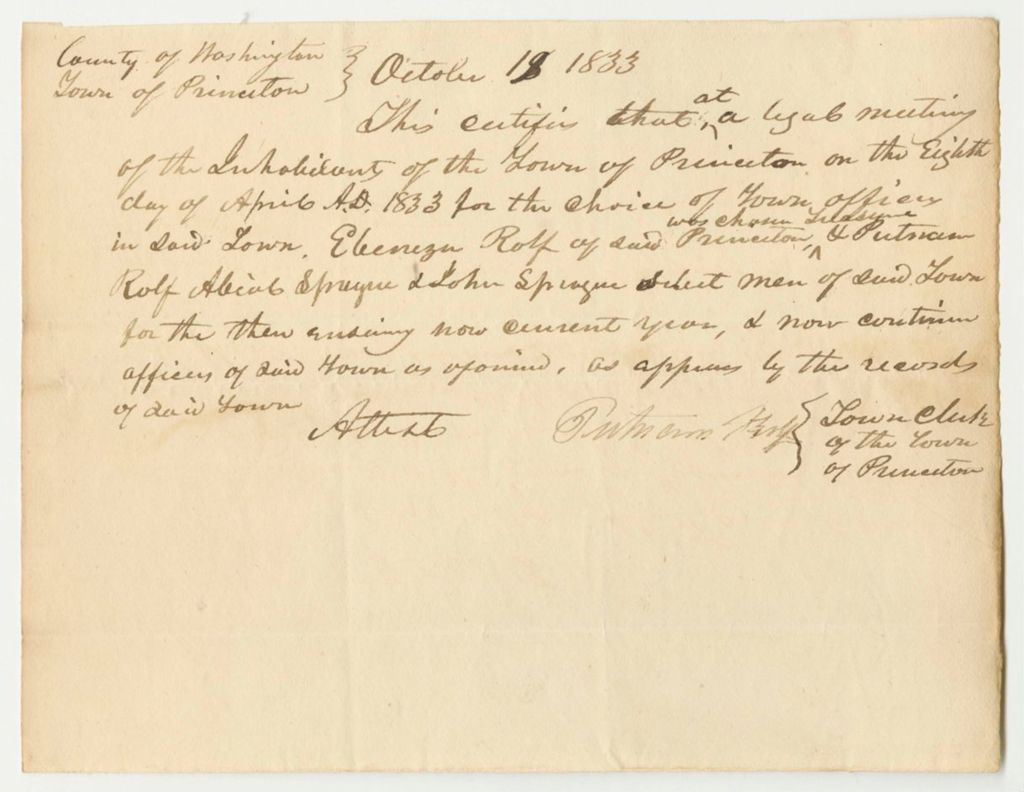 County of Washington
Town of Princeton } October 18 1833
This certifies that, at a legal meeting
of the Inhabitants of the Town of Princeton on the Eighth
day of April A.D. 1833 for the choice of Town officers
in said Town, Ebenezer Rolf of said Princeton, was chosen Treasurer & Putnam
Rolf Abial Sprague & John Sprague Select men of said Town
for the then ensuing now current year, & now continue
officers of said Town as aforsaid, as appears by the records
of said Town
Attest Putnam Rolf } Town Clerk
of the Town
of Princeton